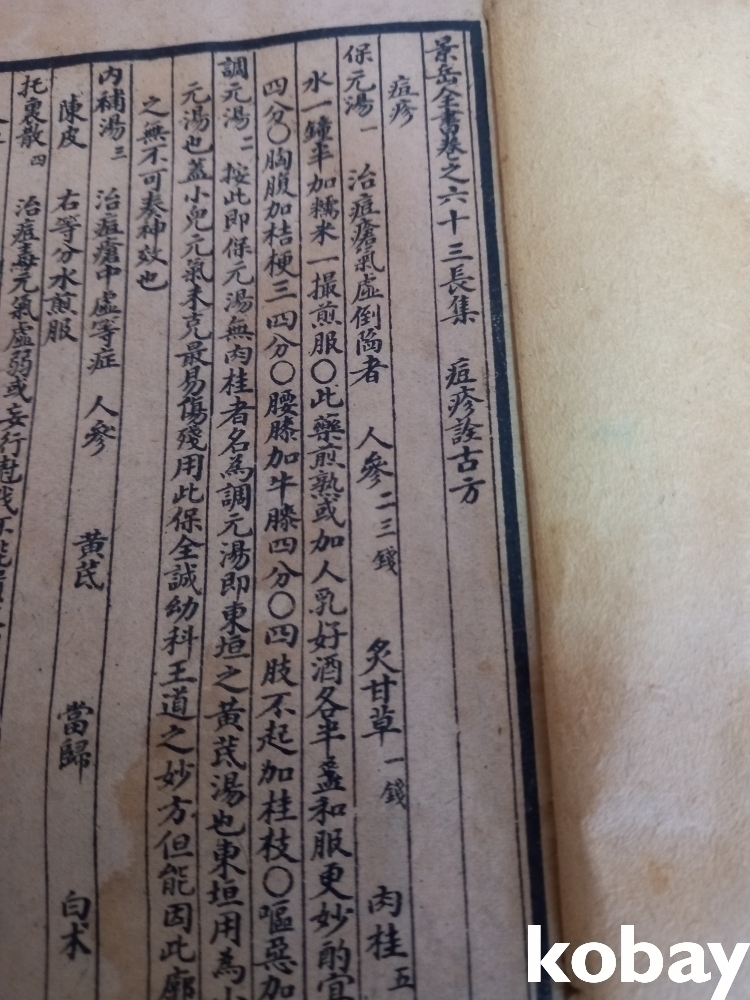 景岳全書卷之六十三長集 痘疹詮古方
痘疹
保元湯 一 治痘瘡氣虛倒陷者 人參 二三錢 炙甘草 一錢 肉桂 五
水一鐘半加糯米一撮煎服〇此藥煎熟或加人乳好酒各半盞和服更妙酌宜
四分〇胸腹加桔梗三四分〇腰膝加牛膝四分〇四肢不起加桂枝〇嘔惡加
調元湯 二 按此即保元湯無肉桂者名為調元湯即東垣之黃芪湯也東垣用為小
元湯也蓋小兒元氣未克最易傷殘用此保全誠幼科王道之妙方但能因此廓
之無不可奏神效也
內補湯 三 治痘瘡中虛等症 人參 黃芪 當歸 白术
陳皮 右等分水煎服
托裏散 四 治痘毒元氣虛弱或妄行尅伐不能
kobay